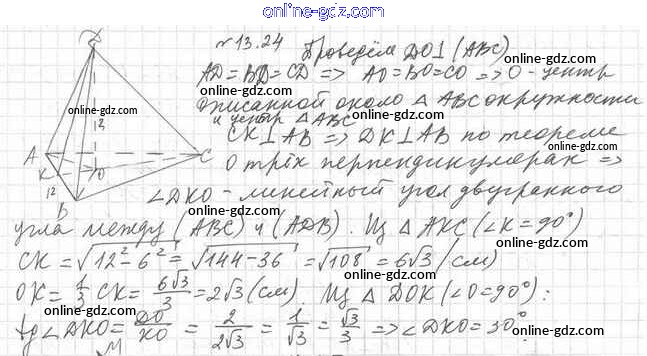 online-gdz.com
№ 13.24 Проведём DO⊥(ABC)
online-gdz.com
AD=BD=CD => AO=BO=CO => O - центр
online-gdz.com
описанной около △ABC окружности
и центр △ABC
online-gdz.com
CK⊥AB => DK⊥AB по теореме
о трёх перпендикулярах =>
online-gdz.com
∠DKO - линейный угол двугранного
online-gdz.com
угла между (ABC) и (ADB). Из △AKC (∠K=90°)
online-gdz.com
CK=√12²-6²=√144-36=√108=6√3 (см)
online-gdz.com
OK=1/3 CK=6√3/3=2√3(см). Из △DOK (∠O=90°):
online-gdz.com
tg∠DKO=DO/KO=2/2√3=1/√3=√3/3 => ∠DKO=30°
online-gdz.com
D
online-gdz.com
2
A
O
C
K
12
B
online-gdz.com